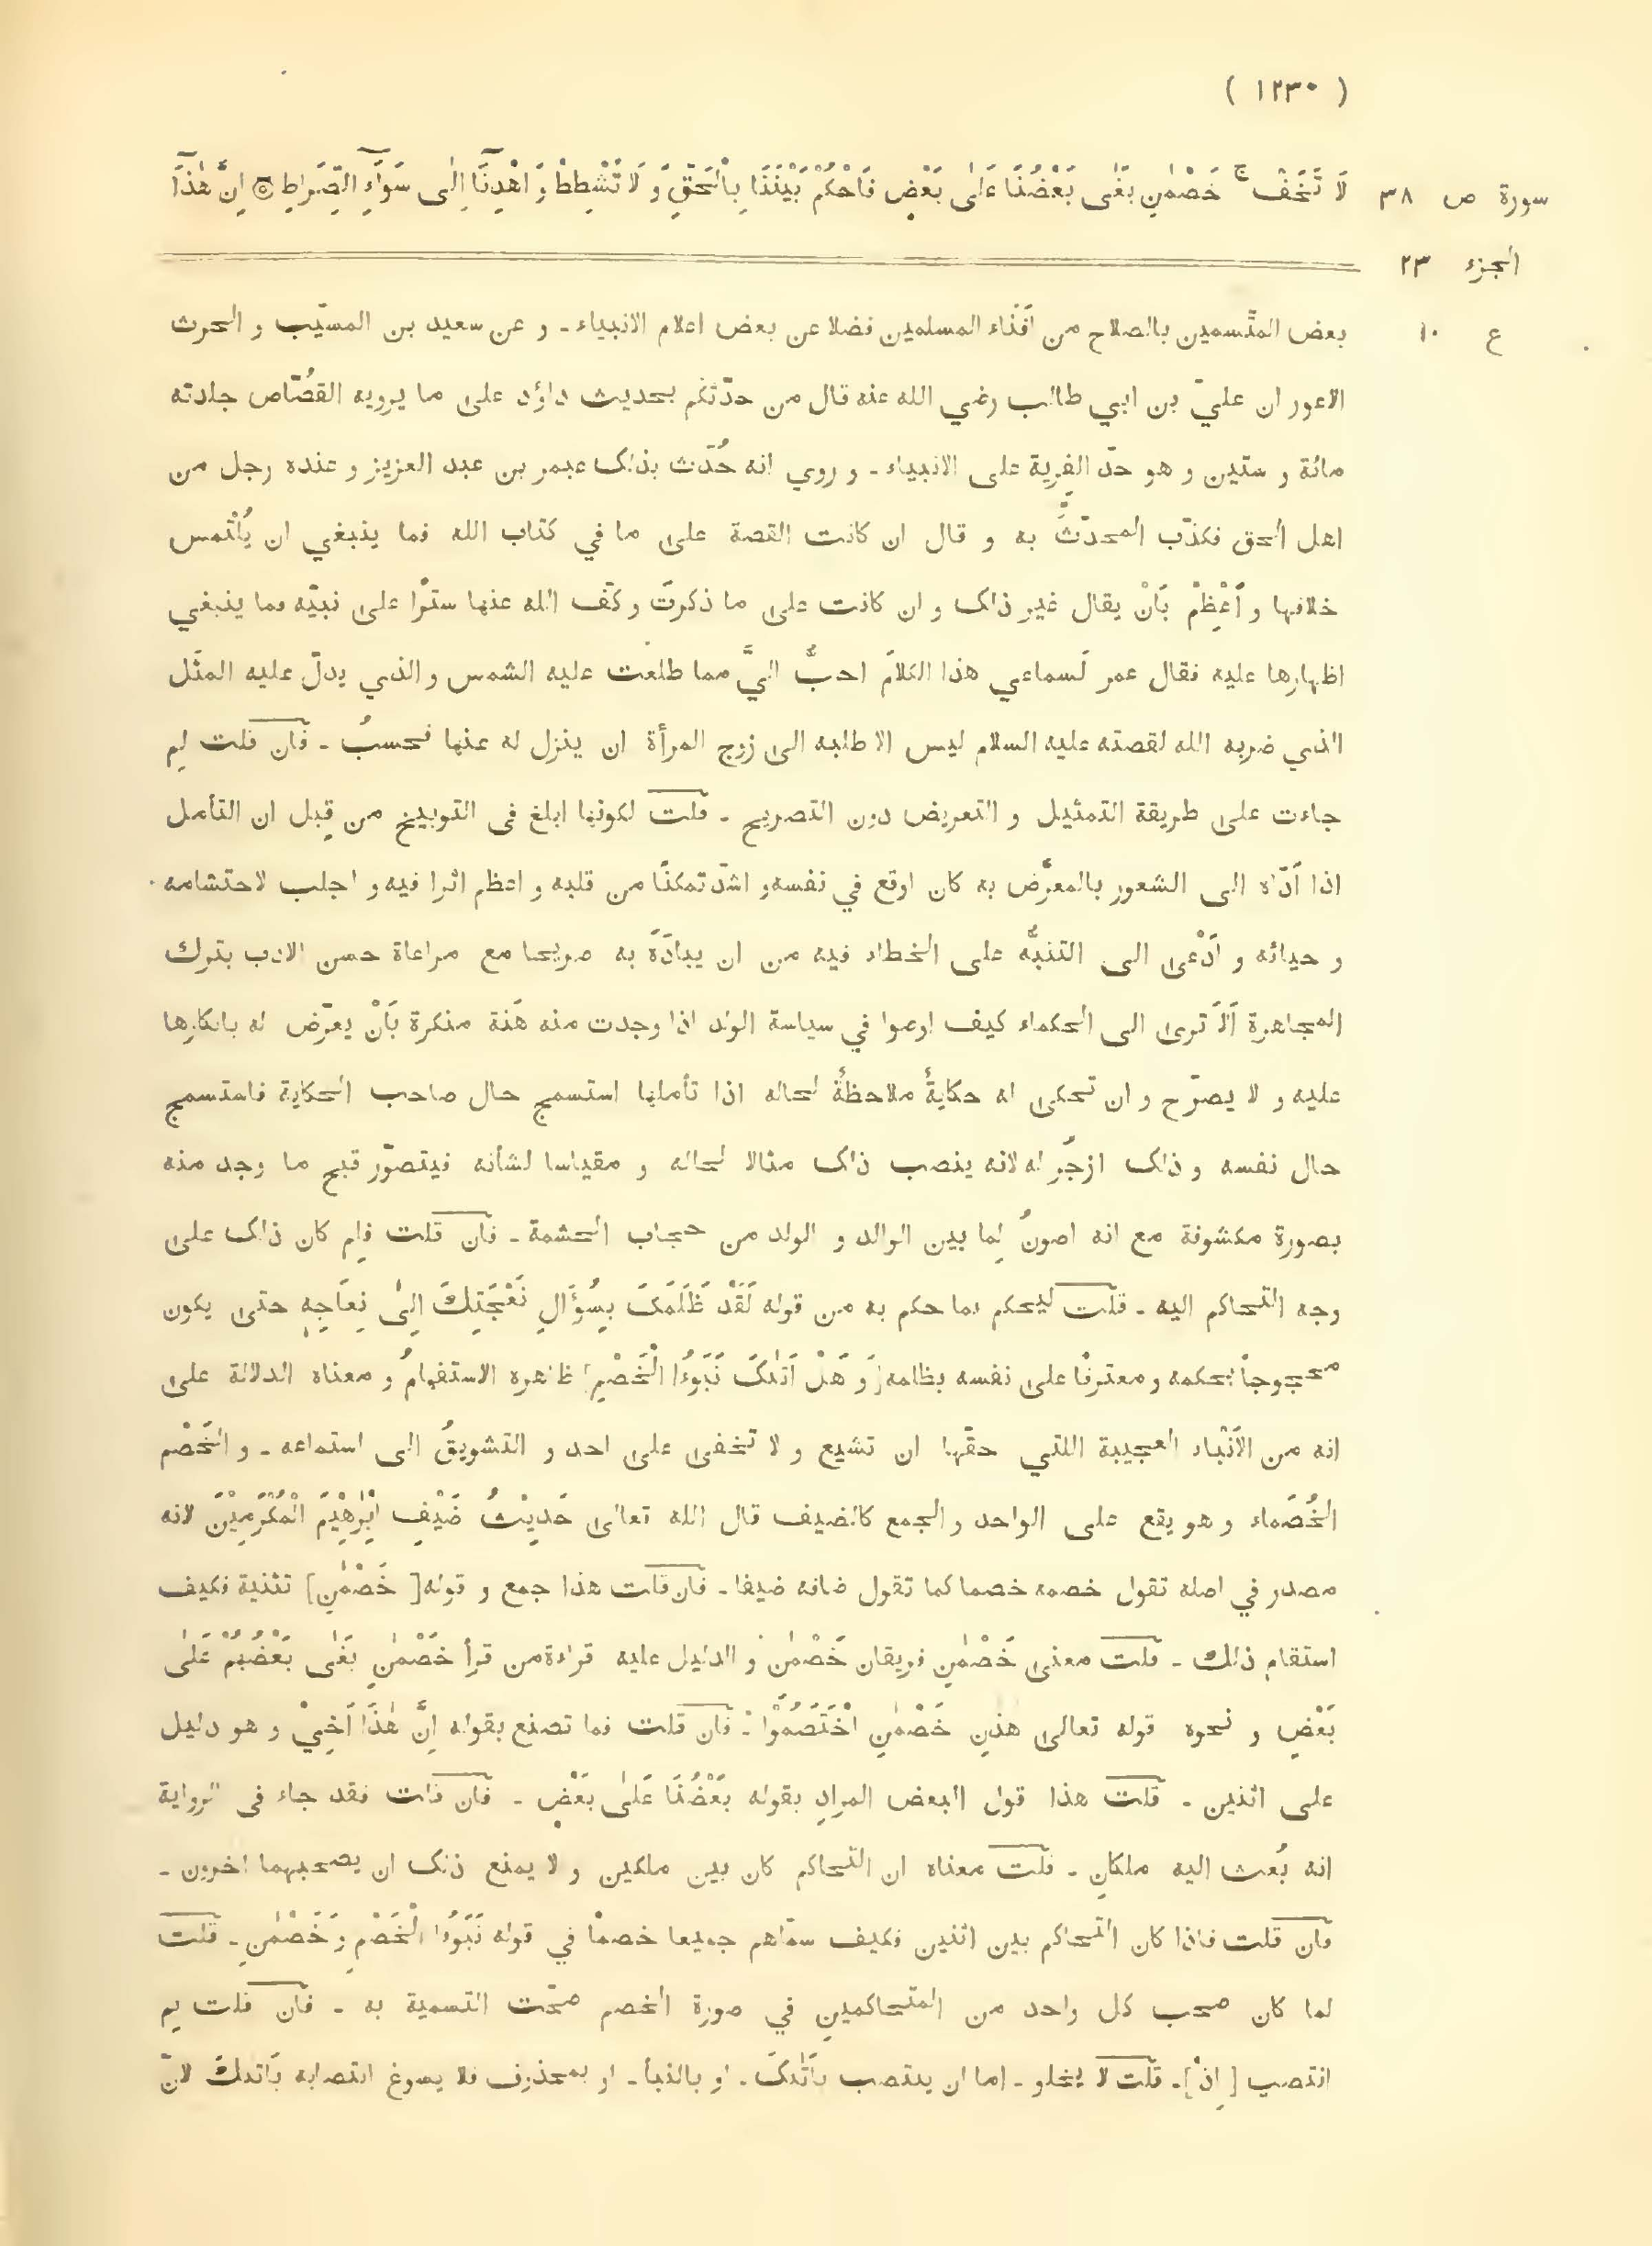 ( ١٢٣٠ )
سورة ص ٣٨ لَا تَخَفْ ج خَصْمٰنِ بَغٰى بَعْضُنَا عَلٰى بَعْضٍ فَاحْكُمْ بَيْنَنَا بِالْحَقِّ وَ لَا تُشْطِطْ وَ اهْدِنَآ اِلٰى سَوَآءِ الصِّرَاطِ ۞ اِنَّ هٰذَآ
الجزء ٢٣
ع ١٠ بعض المتّسمين بالصلاح من اَفْناء المسلمين فضلا عن بعض اعلام الانبياء ـ و عن سعيد بن المسيّب و الحرث
الاعور ان عليّ بن ابي طالب رضي الله عنه قال من حدّثكم بحديث داؤد على ما يرويه القُصّاص جلدته
مائة و ستين و هو حدّ الفِرية على الانبياء ـ و روي انه حُدّث بذلك عمر بن عبد العزيز و عنده رجل من
اهل الحق فكذّب المحدّثَ به و قال ان كانت القصة على ما في كتاب الله فما ينبغي ان يُلْتمس
خلافها و اَعْظِمْ بَاَنْ يقال غير ذلك و ان كانت على ما ذكرتَ و كفّ الله عنها سترًا على نبيّه فما ينبغي
اظهارها عليه فقال عمر لَسماعي هذا الكلامَ احبُّ اليَّ مما طلعت عليه الشمس و الذي يدلّ عليه المثَل
الذي ضربه الله لقصته عليه السلام ليس الا طلبه الى زوج المرأة ان ينزل له عنها فحسبُ ـ فان قلت لم
جاءت على طريقة التمثيل و التعريض دون التصريح ـ قلت لكونها ابلغ فى التوبيخ من قِبل ان التأمل
اذا اَدّاه الى الشعور بالمعرَّض به كان اوقع في نفسه و اشدّ تمكنًا من قلبه و اعظم اثرا فيه و اجلب لاحتشامه
و حيائه و اَدْعى الى التنبُّه على الخطاء فيه من ان يبادَهَ به صريحا مع مراعاة حسن الادب بترك
المجاهرة اَلَا ترى الى الحكماء كيف اوصوا في سياسة الولد اذا وجدت منه هَنة منكرة بَاَنْ يعرّض له بانكارها
عليه و لا يصرّح و ان تحكى له حكايةٌ ملاحظةٌ لحاله اذا تأملها استسمج حال صاحب الحكاية فاستسمج
حال نفسه و ذلك ازجُر له لانه ينصب ذلك مثالا لحاله و مقياسا لشأنه فيتصوّر قبح ما وجد منه
بصورة مكشوفة مع انه اصونُ لِما بين الوالد و الولد من حجاب الحشمة ـ فان قلت فلِم كان ذلك على
وجه التحاكم اليه ـ قلت ليحكم بما حكم به من قوله لَقَدْ ظَلَمَكَ بِسُؤَالِ نَعْجَتِكَ اِلٰى نِعَاجِهٖ حتى يكون
محجوجاً بحكمه و معترفًا على نفسه بظلمه [ وَ هَلْ اَتٰىكَ نَبَؤُا الْخَصْمِ ] ظاهره الاستفهامُ و معناه الدلالة على
انه من الاَنْباء العجيبة اللتي حقّها ان تشيع و لا تخفى على احد و التشويقُ الى استماعه ـ و الخَصْم
الخُصَماء و هو يقع على الواحد و الجمع كالضيف قال الله تعالى حَدِيْثُ ضَيْفِ اِبْرٰهِيْمَ الْمُكْرَمِيْنَ لانه
مصدر في اصله تقول خصمه خصما كما تقول ضافه ضيفا ـ فان قلت هذا جمع و قوله [ خَصْمٰنِ ] تثنية فكيف
استقام ذلك ـ قلت معنى خَصْمٰنِ فريقان خَصْمٰنِ و الدليل عليه قراءة من قرأ خَصْمٰنِ بَغٰى بَعْضُهُمْ عَلٰى
بَعْضٍ و نحوه قوله تعالى هٰذٰنِ خَصْمٰنِ اخْتَصَمُوْا ـ فان قلت فما تصنع بقوله اِنَّ هٰذَا اَخِيْ و هو دليل
على اثنين ـ قلت هذا قول البعض المرادِ بقوله بَعْضُنَا عَلٰى بَعْضٍ ـ فان قلت فقد جاء فى الرواية
انه بُعث اليه ملكانِ ـ قلت معناه ان التحاكم كان بين ملكين و لا يمنع ذلك ان يصحبهما اخرون ـ
فان قلت فاذا كان التحاكم بين اثنين فكيف سمّاهم جميعا خصمًا في قوله نَبَؤُا الْخَصْمِ وَ خَصْمٰنِ ـ قلت
لما كان صحب كل واحد من المتحاكمينِ في صورة الخصم صحّت التسمية به ـ فان قلت بم
انتصب [ اِذْ ] ـ قلت لا يخلو ـ اما ان ينتصب باَتٰىكَ ـ او بالنبأ ـ او بمحذوف فلا يسوغ انتصابه باَتٰىكَ لانّ